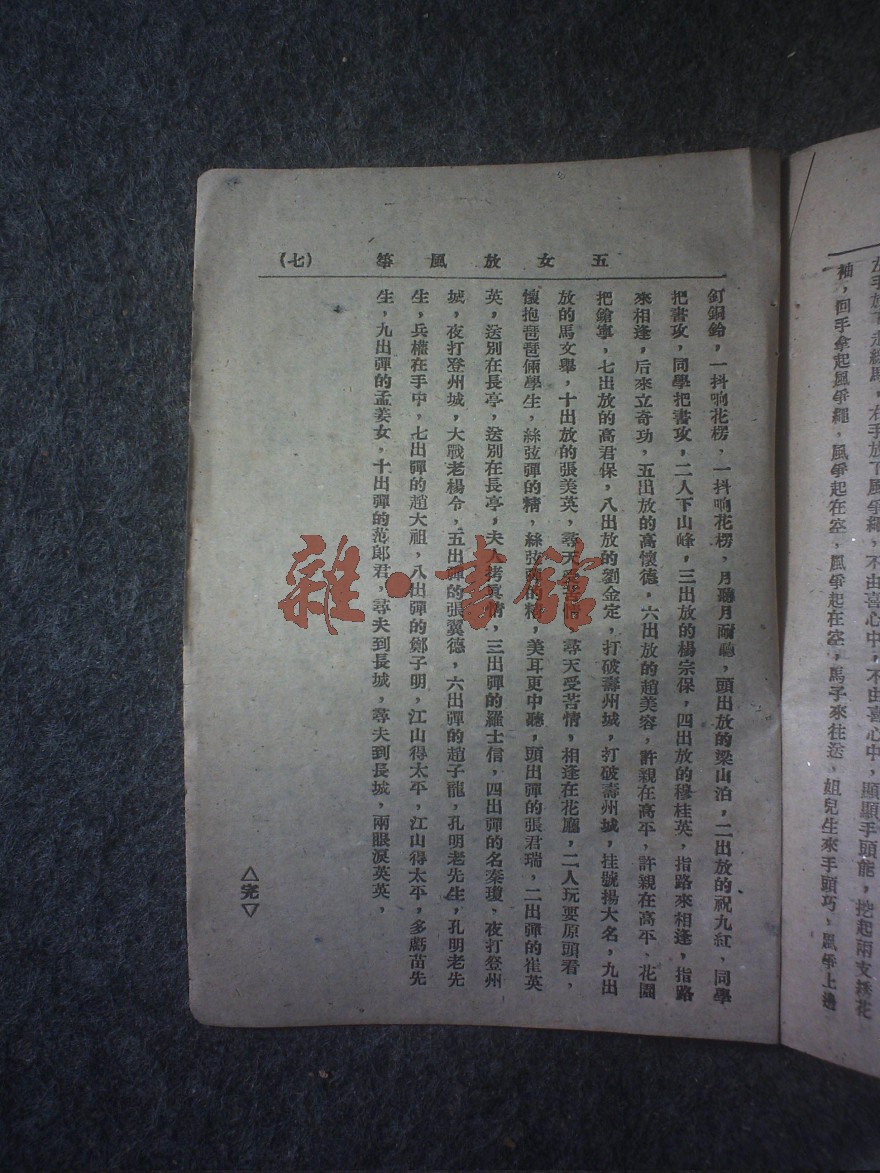 五女放風箏　（七）
釘銅鈴，一抖响花楞，一抖响花楞，月聽月耐聽，頭出放的梁山泊，二出放的祝九紅，同學
把書攻，同學把書攻，二人下山峰，三出放的楊宗保，四出放的穆桂英，指路來相逢，指路
來相逢，后來立奇功，五出放的高懷德，六出放的趙美容，許親在高平，許親在高平，花園
把鎗寧，七出放的高君保，八出放的劉金定，打破壽州城，打破壽州城，挂號揚大名，九出
放的馬文舉，十出放的張美英，尋天受苦情，尋天受苦情，相逢在花廳，二人玩耍原頭看，
懷抱琵琶倆學生，絲弦彈的精，絲弦彈的精，美耳更中聽，頭出彈的張君瑞，二出彈的崔英
英，送別在長亭，送別在長亭，夫人拷眞情，三出彈的羅士信，四出彈的名秦瓊，夜打登州
城，夜打登州城，大戰老楊令，五出彈的張翼德，六出彈的趙子龍，孔明老先生，孔明老先
生，兵權在手中，七出彈的趙大祖，八出彈的鄭子明，江山得太平，江山得太平，多虧苗先
生，九出彈的孟姜女，十出彈的范郎君，尋夫到長城，尋夫到長城，兩眼淚英英，
△完▽
袖，回手拿起風爭繩，風爭起在空，風爭起在空，馬子來往送，姐兒生來手頭巧，風爭上邊
右手放下風爭繩，不由喜心中，不由喜心中，顯顯手頭能，挖起兩支綉花
雜·書館